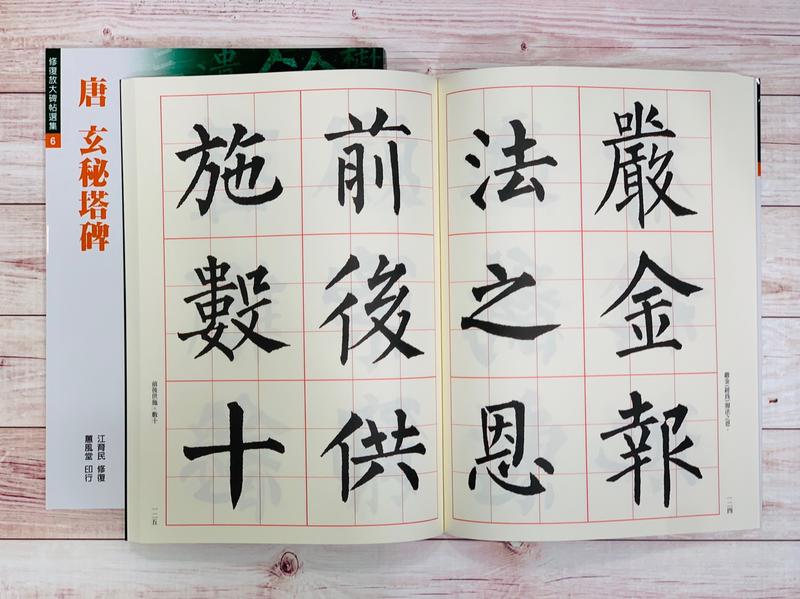 修復放大碑帖選集
6
唐 玄秘塔碑
江育民 修復
蕙風堂 印行
嚴金報
法之恩
前後供
施數十
報法之恩。
一二四
前後供施。數十
一二五